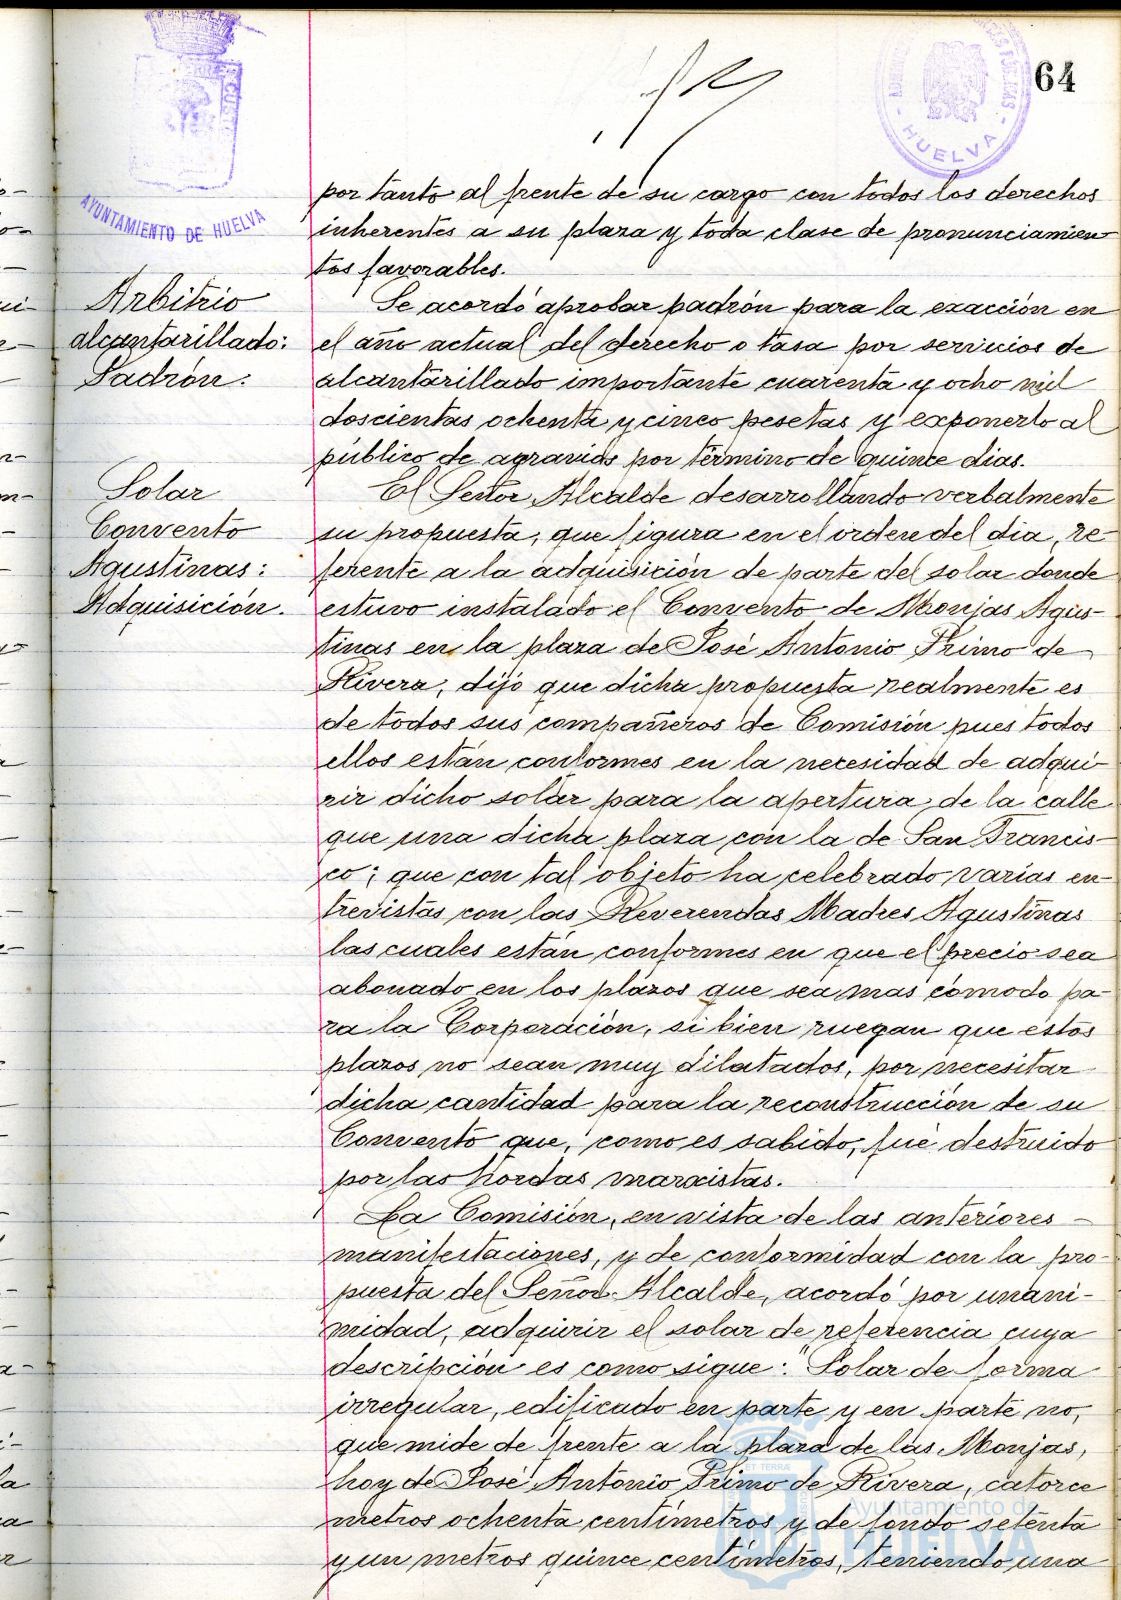 64
HUELVA
AYUNTAMIENTO DE HUELVA
por tanto al frente de su cargo con todos los derechos
inherentes a su plaza y toda clase de pronunciamien-
tos favorables.
Arbitrio
alcantarillado:
Padrón.
Se acordó aprobar padrón para la exacción en
el año actual del derecho o tasa por servicios de
alcantarillado importante cuarenta y ocho mil
doscientas ochenta y cinco pesetas y exponerlo al
público de agravios por término de quince dias.
Solar
Convento
Agustinas:
Adquisición.
El Señor Alcalde desarrollando verbalmente
su propuesta, que figura en el orden del dia, re-
ferente a la adquisición de parte del solar donde
estuvo instalado el Convento de Monjas Agus-
tinas en la plaza de José Antonio Primo de
Rivera, dijo que dicha propuesta realmente es
de todos sus compañeros de Comisión pues todos
ellos están conformes en la necesidad de adqui-
rir dicho solar para la apertura de la calle
que una dicha plaza con la de San Francis-
co; que con tal objeto ha celebrado varias en-
trevistas con las Reverendas Madres Agustinas
las cuales están conformes en que el precio sea
abonado en los plazos que sea mas cómodo pa-
ra la Corporación, si bien ruegan que estos
plazos no sean muy dilatados, por necesitar
dicha cantidad para la reconstrucción de su
Convento que, como es sabido, fué destruido
por las hordas marxistas.
La Comisión, en vista de las anteriores
manifestaciones, y de conformidad con la pro-
puesta del Señor Alcalde, acordó por unani-
midad, adquirir el solar de referencia cuya
descripción es como sigue: "Solar de forma
irregular, edificado en parte y en parte no,
que mide de frente a la plaza de las Monjas,
hoy de José Antonio Primo de Rivera, catorce
metros ochenta centímetros y de fondo setenta
y un metros quince centímetros, teniendo una
Ayuntamiento de
HUELVA